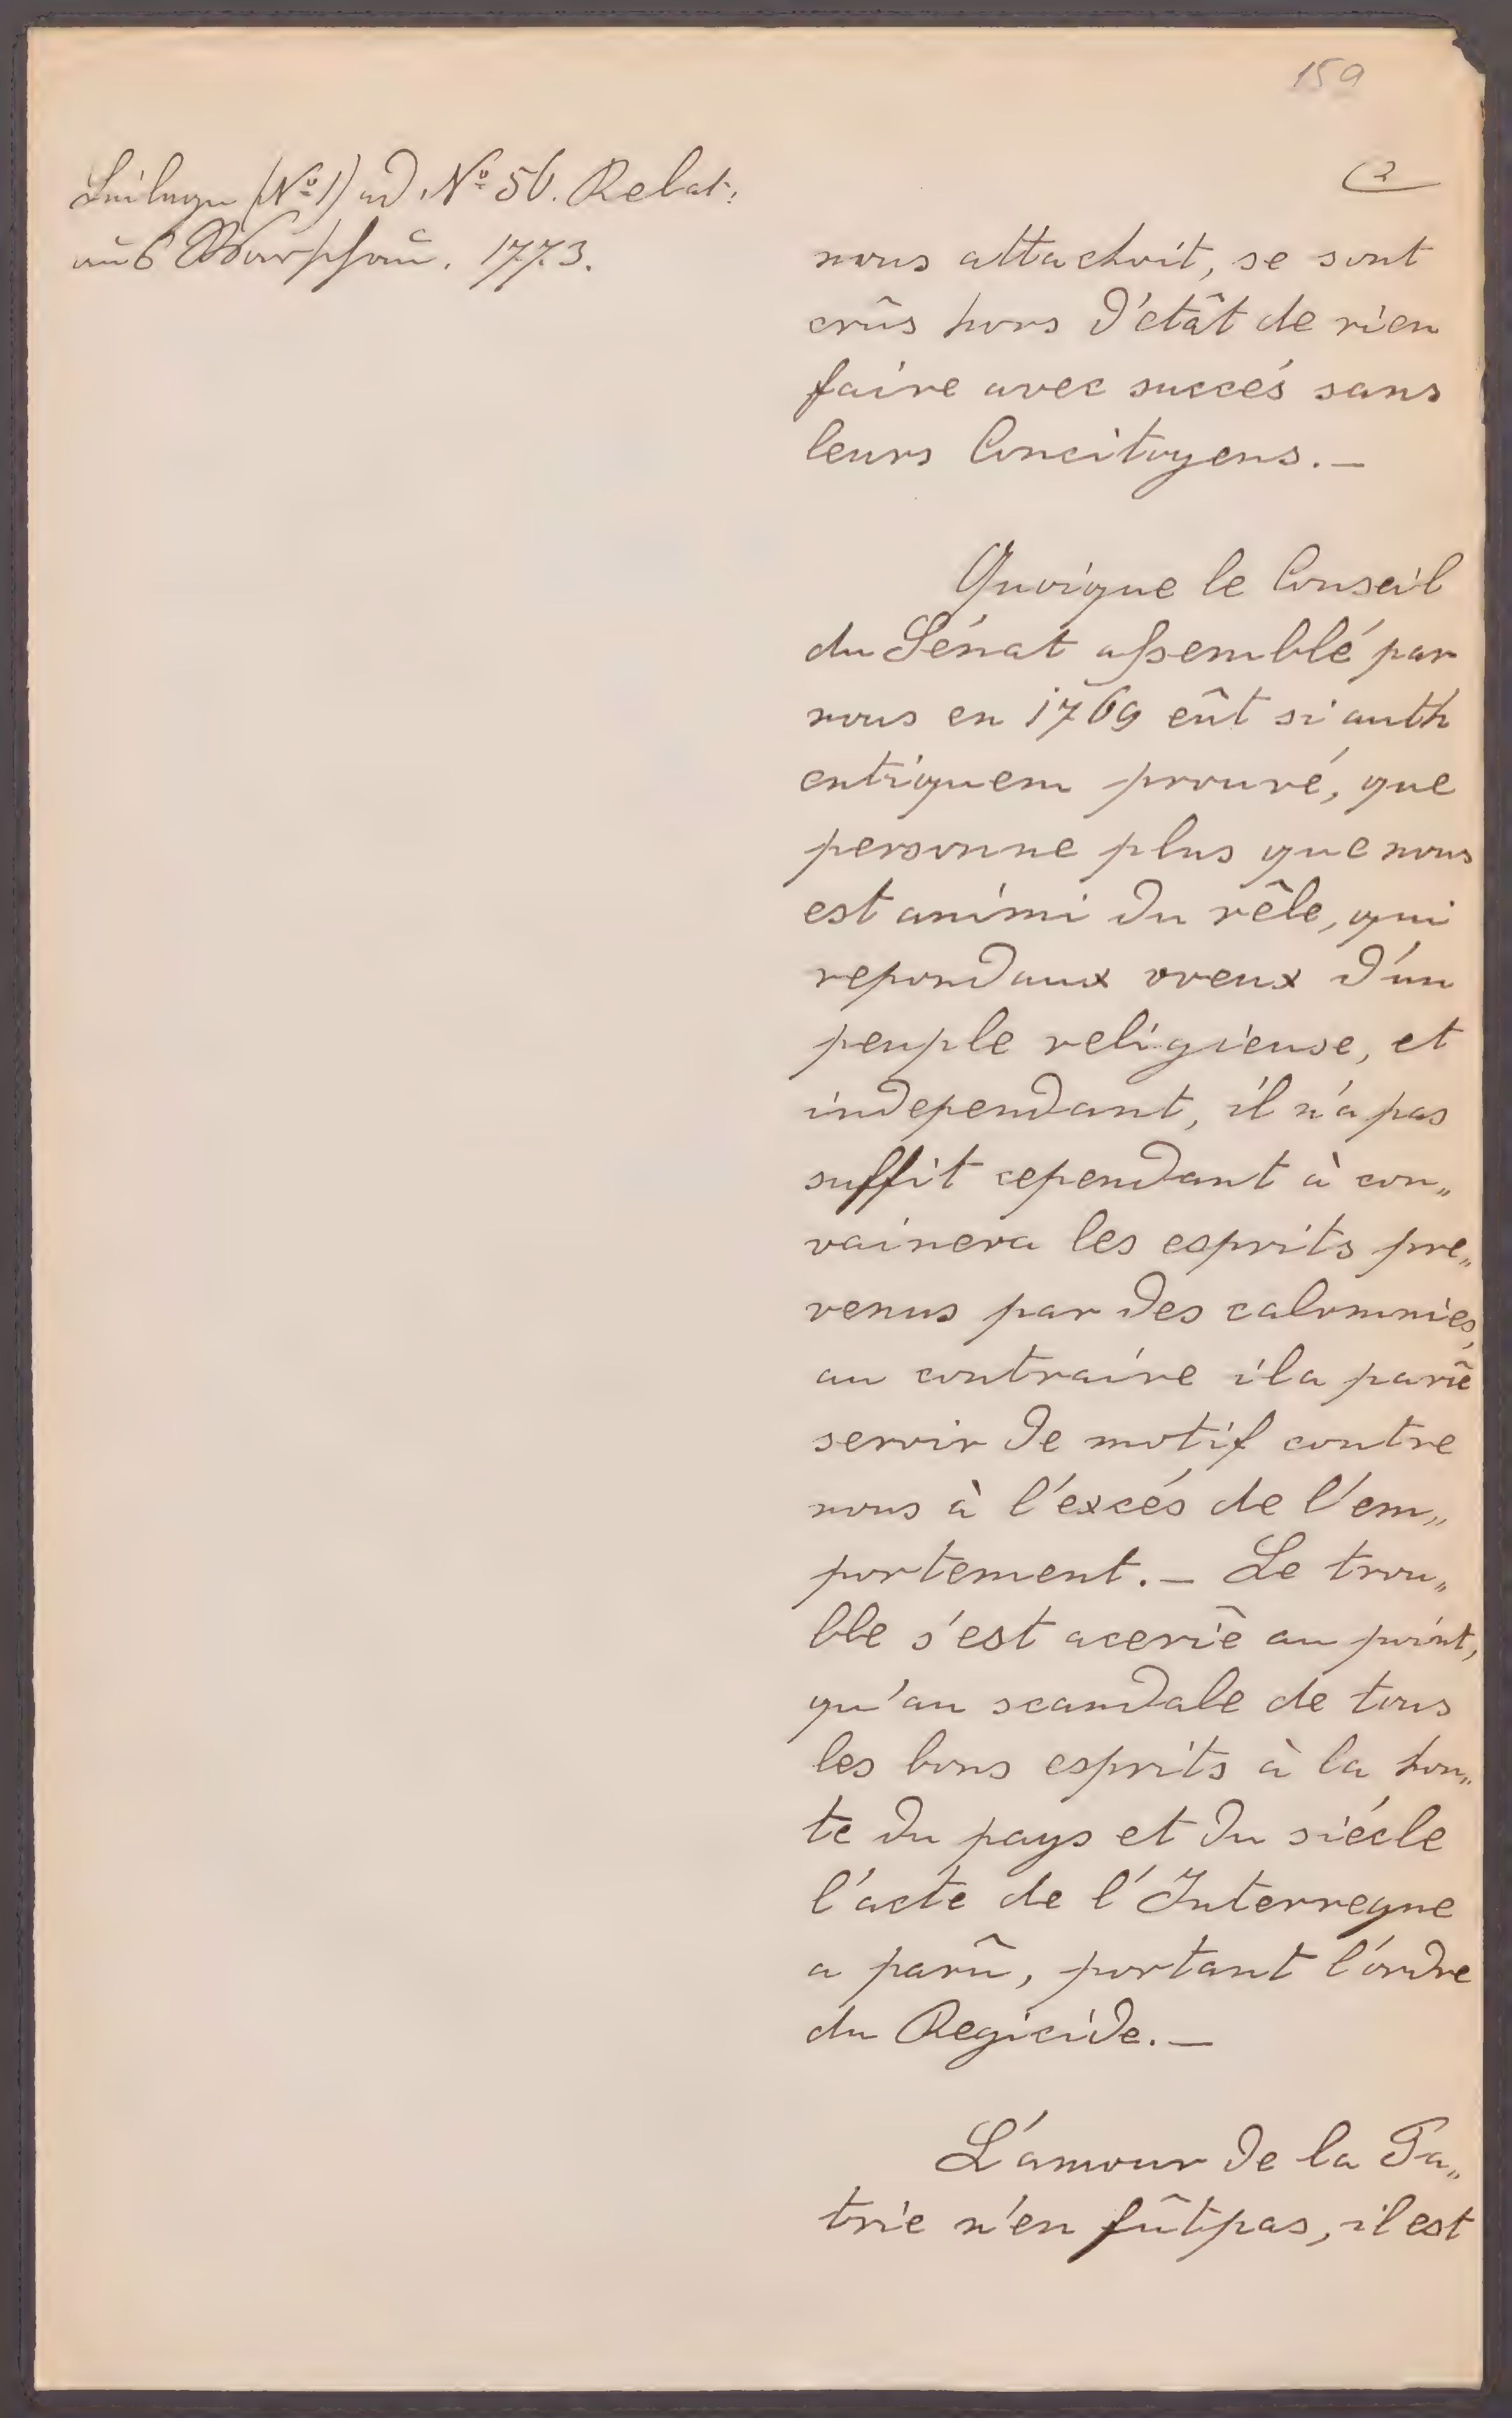 159
Beilage (Nº 1) ad Nº 56. Relat:
auß Warschau. 1773.
2
nous attachoit, se sont
crûs hors d'etât de rien
faire avec succés sans
leurs Concitoyens. —
Quoique le Conseil
du Sénat assemblé par
nous en 1769 eût si auth
entiquem prouvé, que
personne plus que nous
est animi du rêle, qui
repondaux vveux d'un
peuple religieuse, et
independant, il n'a pas
suffit cependant à con„
vainera les esprits pre„
venus par des calomnies,
au contraire il a parû
servir de motif contre
nous à l'excés de l'em„
portement. — Le trou„
ble s'est acerîe au point,
qu'au scandale de tous
les bons esprits à la hon„
te du pays et du siécle
l'acte de l'Interregne
a parû, portant l'ordre
du Regicide. —
L'amour de la Pa„
trie n'en fût pas, il est